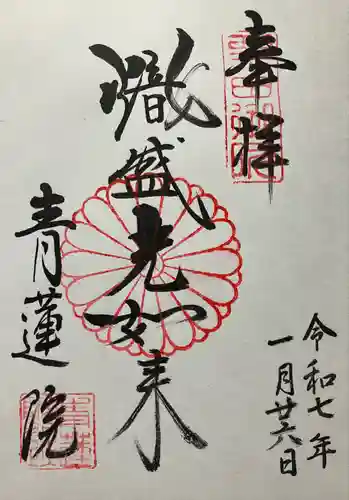 奉拝
熾盛光如来
青蓮院
令和七年
一月廿六日